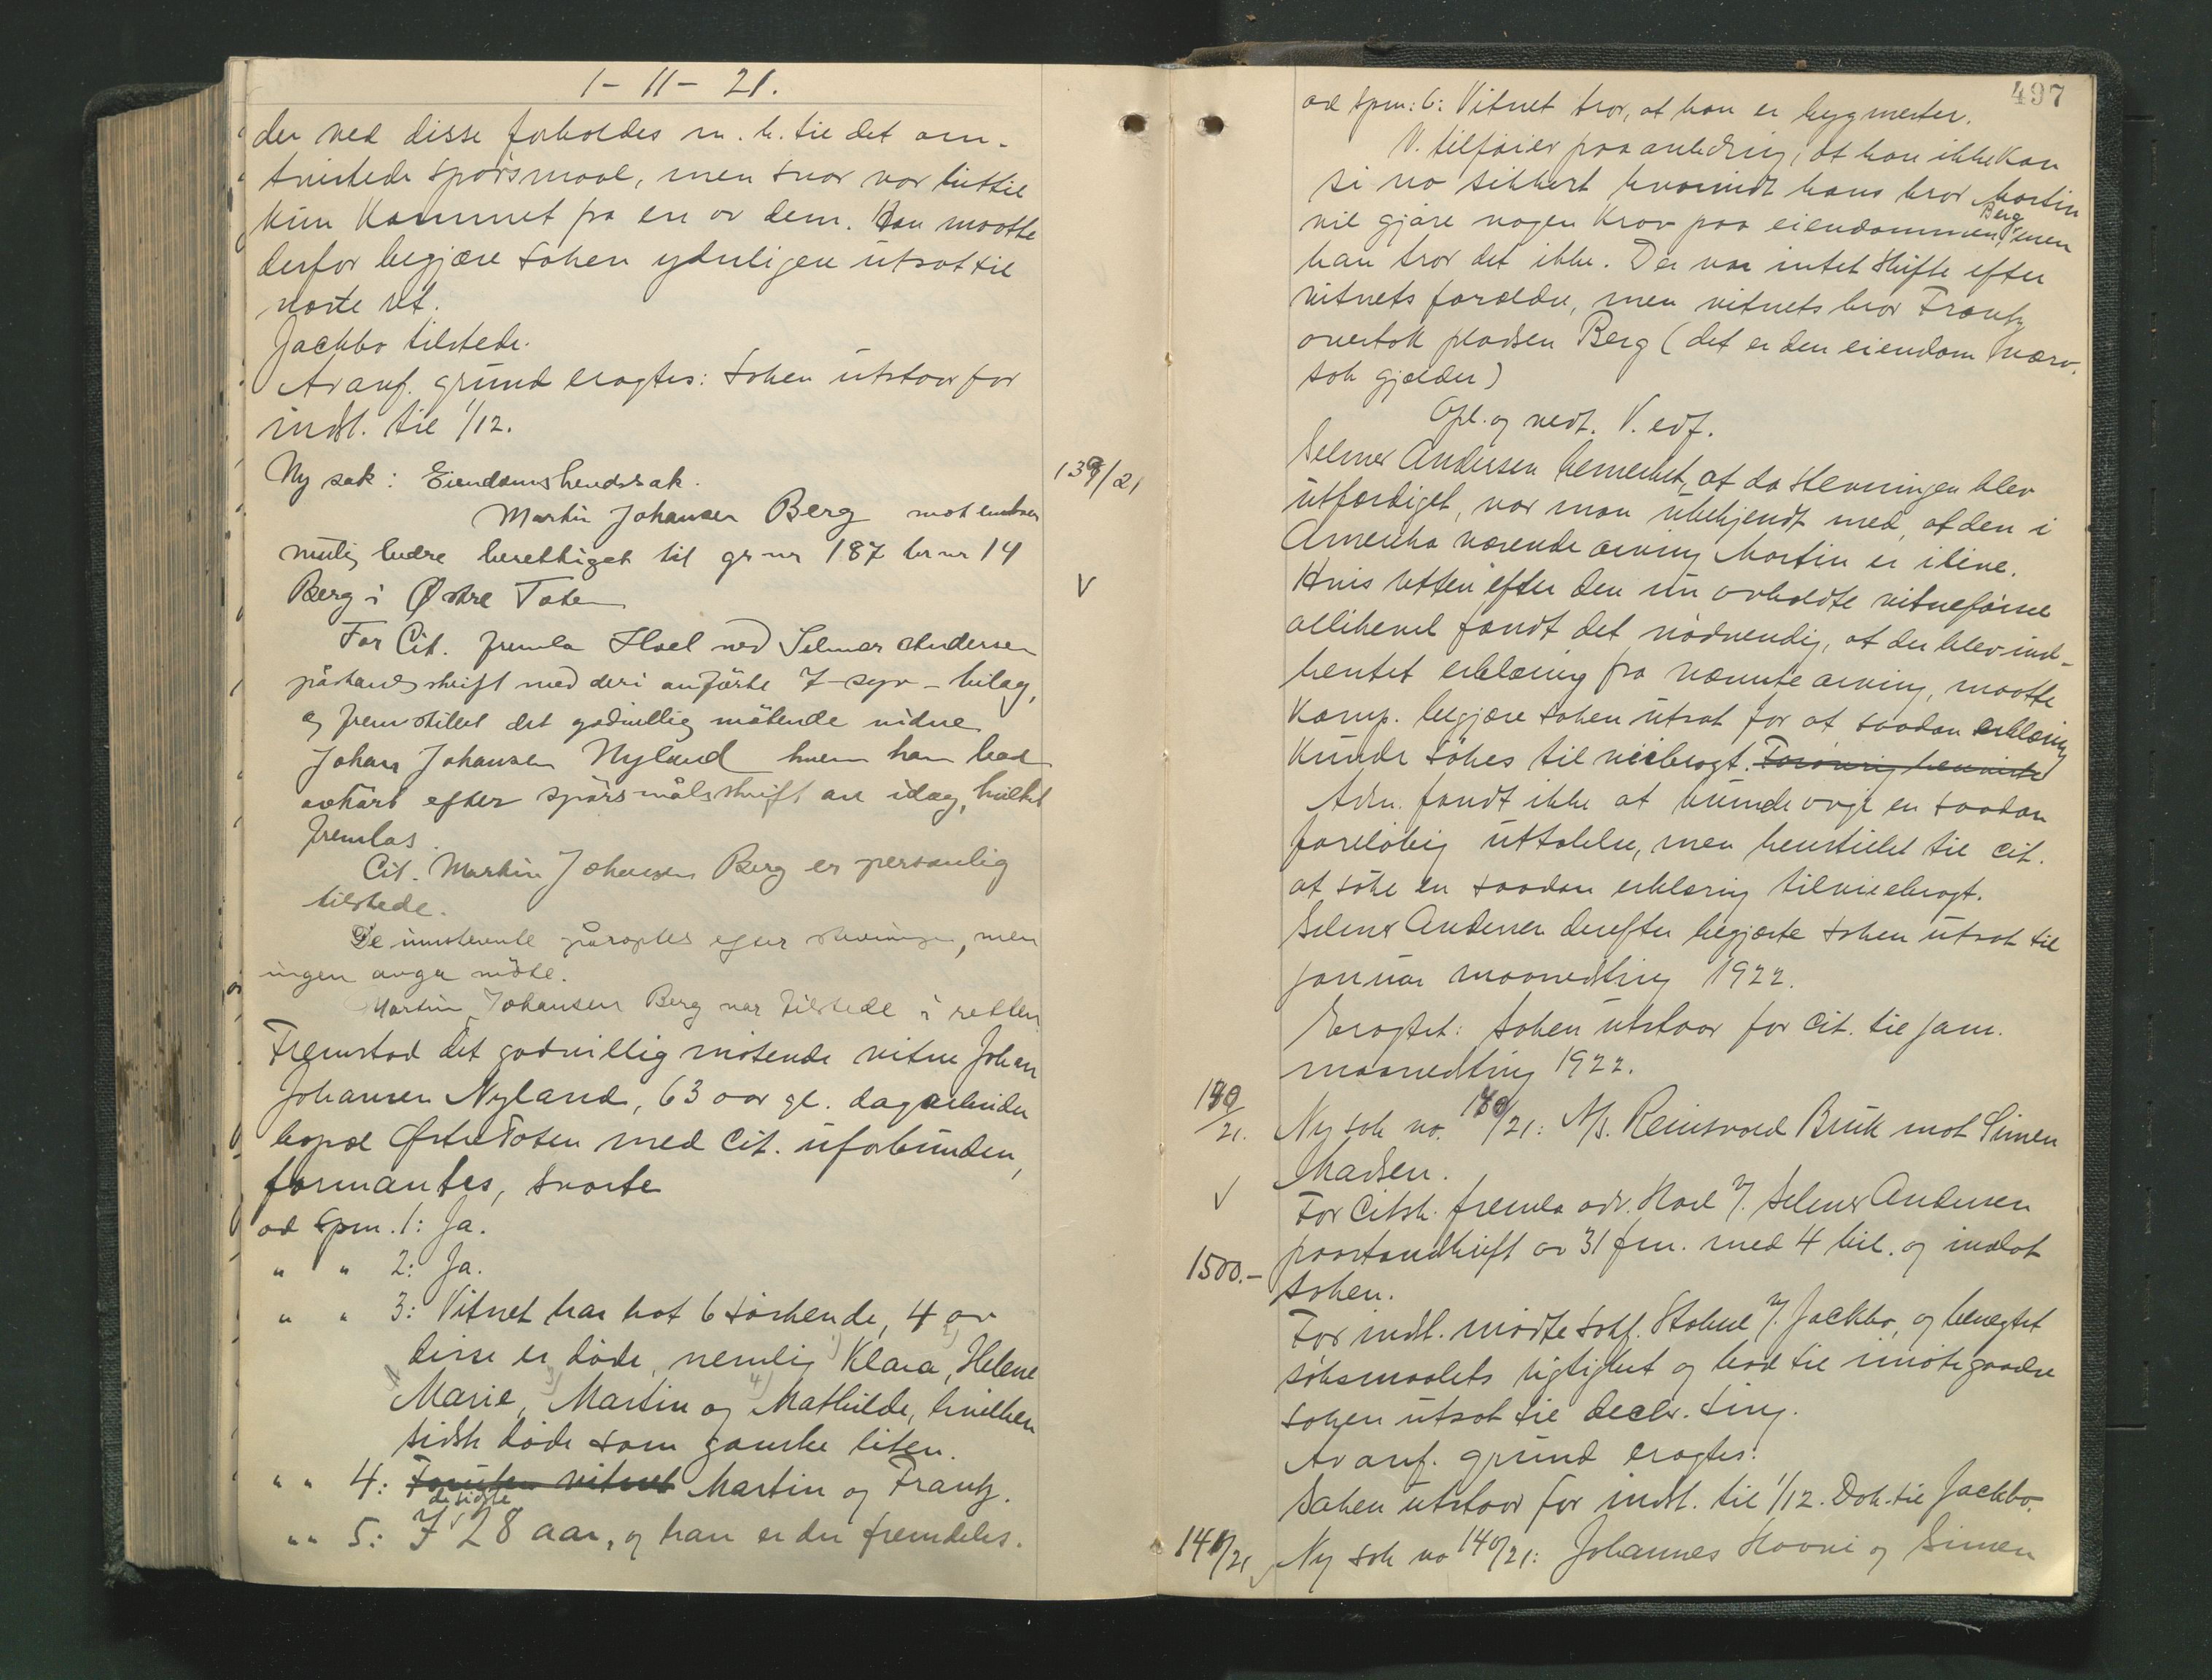 1-11-21.
der ved disse forholdes m.h. til det om-
tvistede spørsmaal, men svar var hittil
kun kommet fra en av dem. Han maatte
derfor begjære saken ydterligere utsat til
næste ret.
Jackbo tilstede.
Av anf. grund eragtes: Saken utstaar for
indst. til 1/12.
Ny sak: Eiendomshevdssak. 139/21
Martin Johansen Berg mot enhver
mulig bedre berettiget til gr nr 187 br nr 14
Berg i Østre Toten V
For Cit. fremla Hoel ved Selmer Andersen
påstandsskrift med deri anførte 7 - syv - bilag,
og fremstillet det godvillig møtende vidne
Johan Johansen Nyland hvem han bad
avhørt efter spørsmålsskrift av idag, hvilket
fremlas.
Cit. Martin Johansen Berg er personlig
tilstede.
De innstevnte påroptes efter stevningen, men
ingen avga møte.
Martin Johansen Berg var tilstede i retten
Fremstod det godvillig møtende vitne Johan
Johansen Nyland, 63 aar gl. dagarbeider
bopæl Østre Toten med cit. uforbunden,
formantes, svarte
ad Spm. 1: Ja.
" " 2: Ja.
" " 3: Vitnet har hat 6 søskende, 4 av
disse er døde, nemlig 1) Klara, 2) Helene
Marie, 3) Martin og 4) Mathilde, hvilken
sidste døde som ganske liten.
" " 4: Foruten vitnet Martin og Frantz.
" " 5: I de sidste 28 aar, og han er der fremdeles.
497
ad spm: 6: Vitnet tror, at han er bygmester.
V. tilføier paa anledning, at han ikke kan
si no sikkert hvorvidt hans bror Martin
vil gjøre nogen krav paa eiendommen Berg, men
han tror det ikke. Der var intet skifte efter
vitnets forældre, men vitnets bror Frantz
overtok pladsen Berg (det er den eiendom nærv.
sak gjælder)
Opl. og vedt. V. edf.
Selmer Andersen bemerket, at da stevningen blev
utfærdiget, var man ubekjendt med, at den i
Amerika værende arving Martin er ilive.
Hvis retten efter den nu avholdte vitneførsel
allikevel fandt det nødvendig, at der blev ind-
hentet erklæring fra nævnte arving, maatte
komp. begjære saken utsat for at saadan erklæring
kunde søkes tilveiebragt. Forøvrig henviste
Adm. fandt ikke at kunde avgi en saadan
foreløbig uttalelse, men henstillet til cit.
at søke en saadan erklæring tilveiebragt.
Selmer Andersen derefter begjærte saken utsat til
januar maanedsting 1922.
Eragtet: Saken utstaar for cit. til jan.
maanedsting 1922.
140/21. Ny sak no. 140/21: A/S. Reinsvold Bruk mot Simen
Madsen.
V For Citsk. fremla adv. Hoel v/. Selmer Andersen
paastandskrift av 31 f.m. med 4 bil. og indlot
1500.- saken.
For indst. mødte sakf. Stabue v/. Jackbo, og benegtet
søksmaalets rigtighet og bad til imøtegaaelse
saken utsat til decbr. ting.
Av anf. grund eragtes:
Saken utstaar for indst. til 1/12. Dok. til Jackbo.
141/21 Ny sak no 140/21: Johannes Hovni og Simen